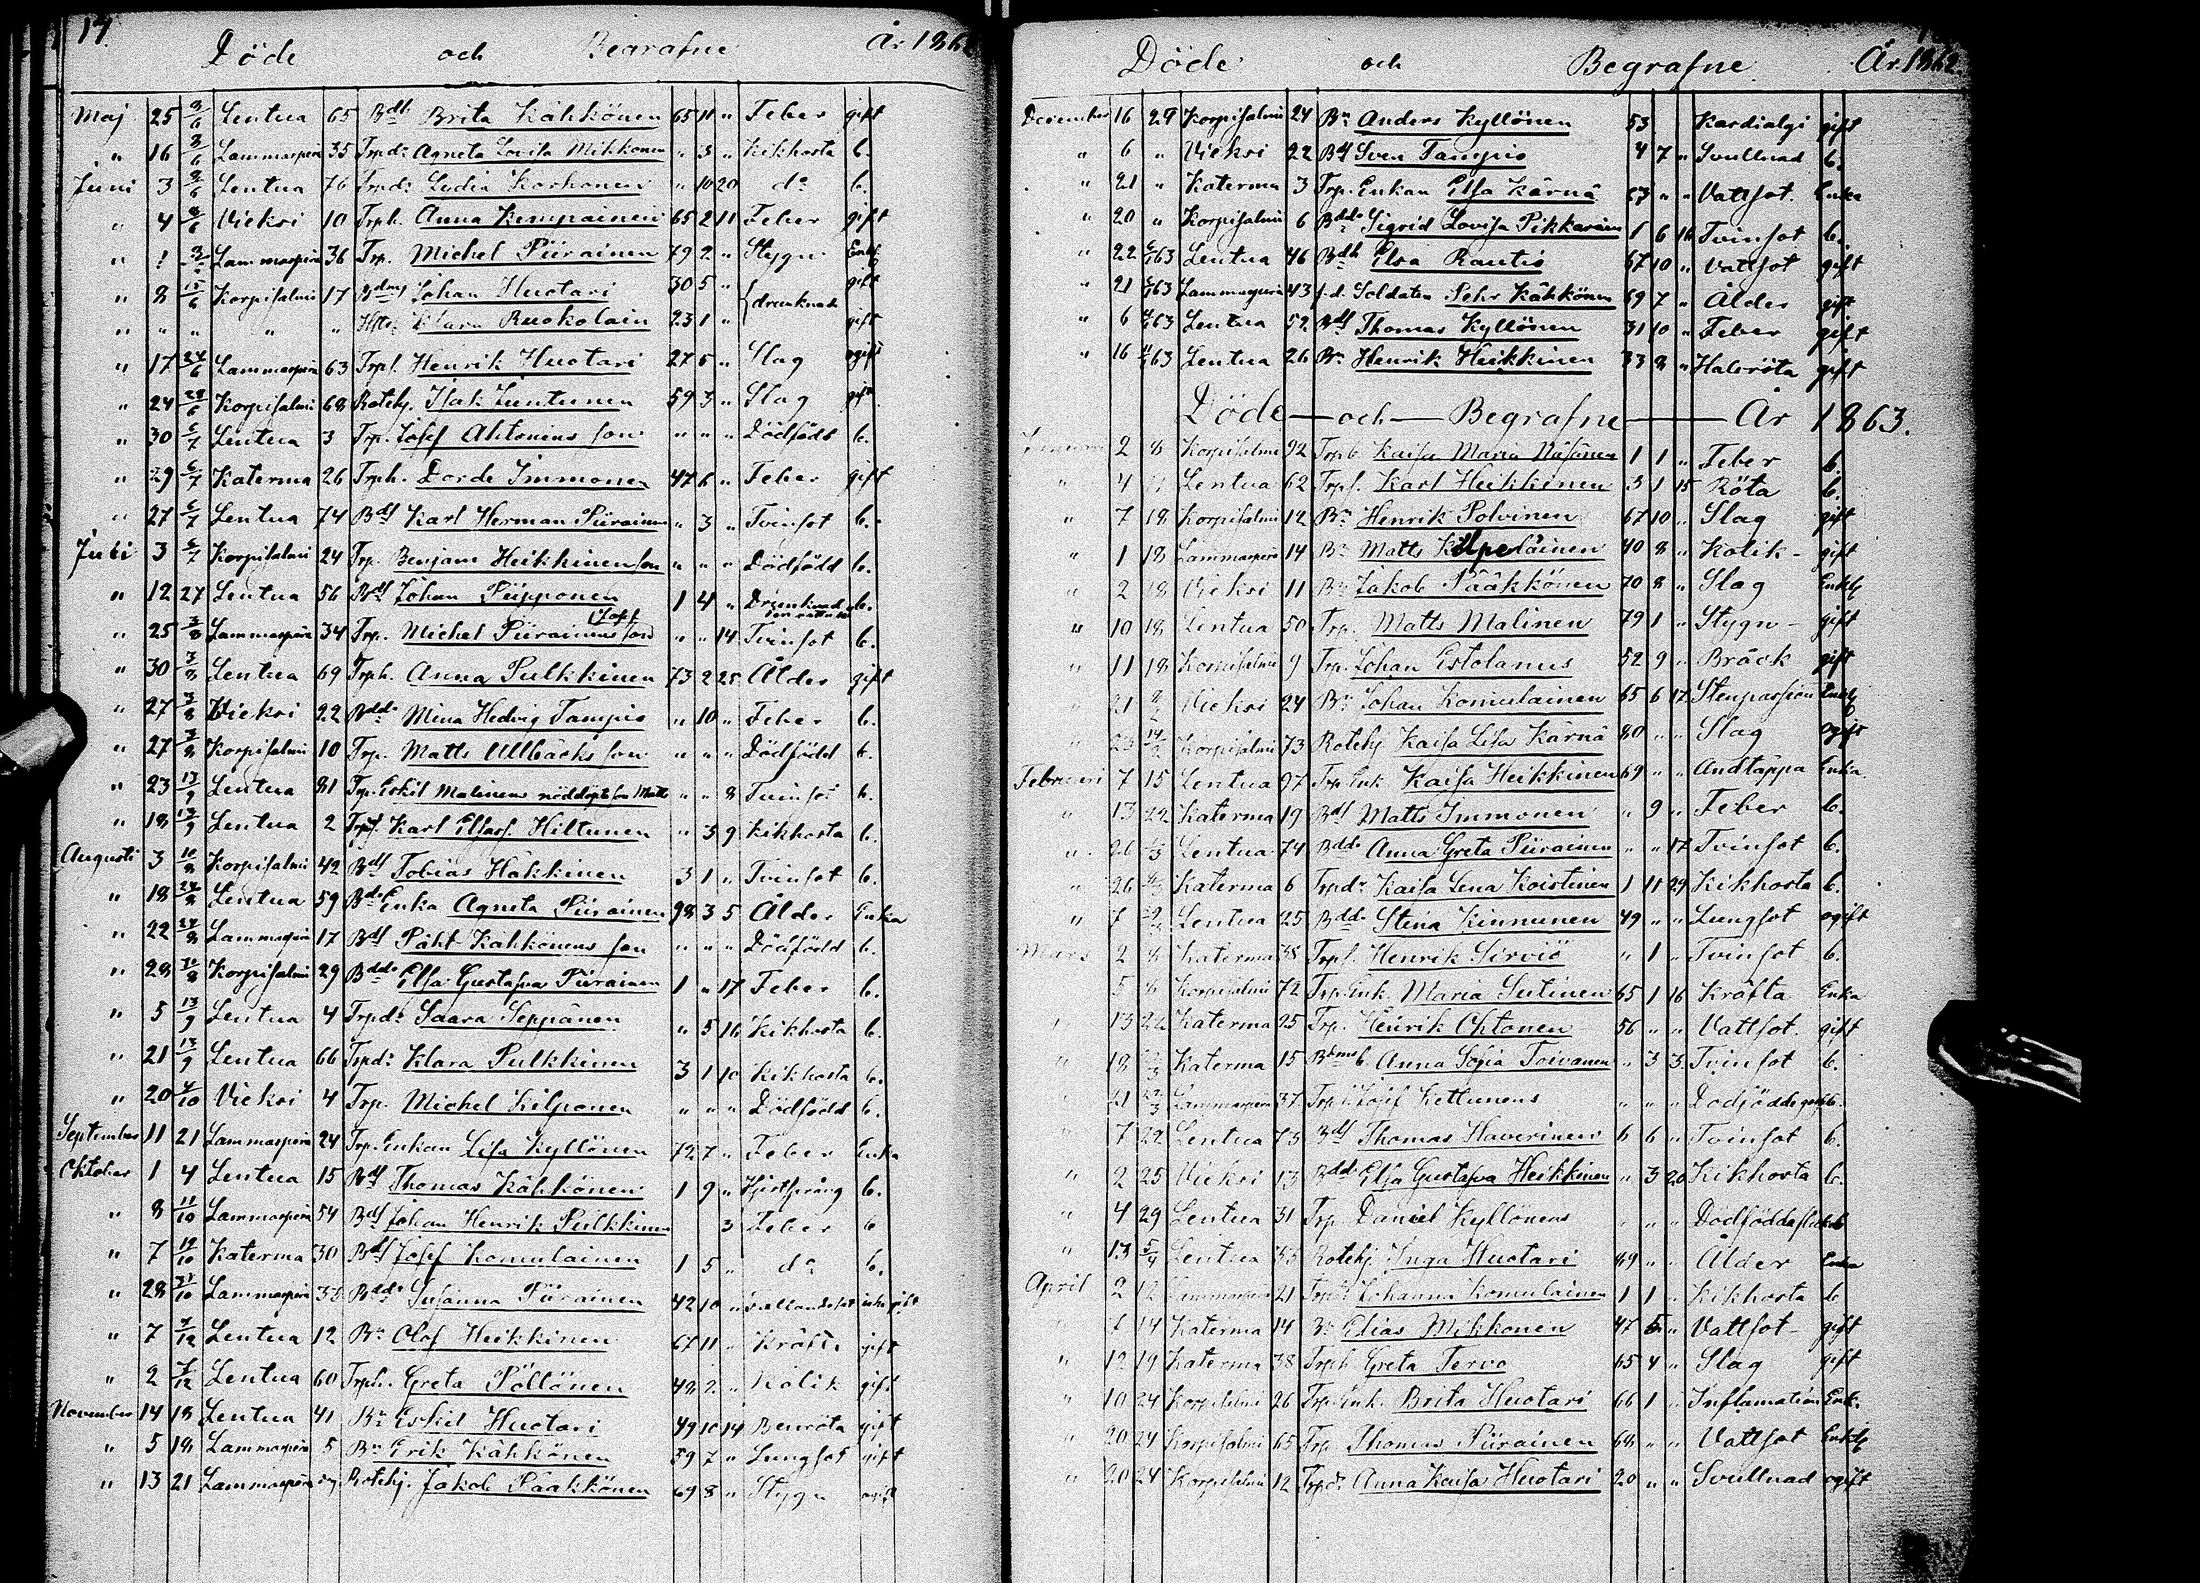 17.
Döde och Begrafne År 186
Maj 25 3/6 Lentua 65 Bdh Brita Kähkönen 65 11 " Feber gift
" 16 3/6 Lammasperä 35 Trpdr Agneta Lovisa Mikkonen " 3 " Kikhosta b.
Juni 3 8/6 Lentua 76 Trpdr Lydia Korhonen " 10 20 do b.
" 4 8/6 Vieksi 10 Trph. Anna Kemppainen 65 2 11 Feber gift
" Lammasperä 36 Trp. Michel Piirainen 79 2 " Stygn Enkl
" 8 15/6 Korpisalmi 17 Johan Huotari 30 5 " drunknade gift
" " " " " Hstr. Klara Ruokolain 23 1 " gift
" 17 24/6 Lammasperä 63 Trps. Henrik Huotari 27 5 " Slag ogift
" 24 29/6 Korpisalmi 68 Rotehj. Isak Juntunen 59 3 " Slag gift
" 30 6/7 Lentua 3 Trp. Josef Ahtonius son " " " Dödfödd b.
" 29 6/7 Katerma 26 Trph. Dorde Immonen 47 6 " Feber gift
" 27 6/7 Lentua 74 Bds Karl Herman Piirainen " 3 " Tvinsot b.
Juli 3 6/7 Korpisalmi 24 Trp. Benjam Heikkinens son " " " Dödfödd b.
" 12 27 Lentua 56 Bds Johan Piipponen 1 4 " Drunknad b.
" 25 3/8 Lammasperä 34 Trp. Michel Piirainens son " " 14 Tvinsot b.
" 30 3/8 Lentua 69 Trph. Anna Pulkkinen 73 2 25 Ålder gift
" 27 3/8 Vieksi 22 Bddr Mina Hedvig Tampio " 10 " Feber b.
" 27 3/8 Korpisalmi 10 Trp. Matts Ullbäcks son " " " Dödfödd b.
" 23 13/9 Lentua 81 Trp. Eskil Malinens nöddöpte son Matts " " 8 Tvinsot b.
" 18 13/9 Lentua 2 Trps. Karl Elfars. Hiltunen " 5 9 Kikhosta b.
Augusti 3 10/8 Korpisalmi 42 Bds Tobias Häkkinen 3 1 " Tvinsot b.
" 18 24/8 Lentua 59 Bds Enka Agneta Piirainen 98 3 5 Ålder Enka
" 22 24/8 Lammasperä 17 Bds Påhl Kähkönens son " " " Dödfödd b.
" 28 31/8 Korpisalmi 29 Bddr Elsa Gustafva Piirainen 1 " 17 Feber b.
" 5 13/9 Lentua 4 Trpdr Saara Seppänen " 5 16 Kikhosta b.
" 21 13/9 Lentua 66 Trpdr Klara Pulkkinen 3 1 10 Kikhosta b.
" 20 4/10 Vieksi 4 Trp. Michel Kilponen " " " Dödfödd b.
September 11 21 Lammasperä 24 Trp. Enkan Lisa Kyllönen 72 7 " Feber Enka
Oktober 1 4 Lentua 15 Bds Thomas Kähkönen 1 9 " Hjertsprång b.
" 8 11/10 Lammasperä 54 Bds Johan Henrik Pulkkinen 3 Feber b
" 7 19/10 Katerma 30 Bds Josef Komulainen 1 5 " do b.
" 28 31/10 Lammasperä 38 Bddr Susanna Piirainen 42 10 " Fallandesot icke gift
" 7 7/12 Lentua 12 Bn Olof Heikkinen 67 11 " Kräfta gift
" 2 7/12 Lentua 60 Trph. Greta Pöllönen 48 2 " Kolik gift
November 14 18 Lentua 41 Bn Eskil Huotari 49 10 14 Benröta gift
" 5 18 Lammasperä 5 Bn Erik Kähkönen 59 7 " Lungsot gift
" 13 21 Lammasperä Rotehj. Jakob Pääkkönen 69 8 " Stygn ogift
Döde och Begrafne År 1862.
December 16 29 Korpisalmi 24 Bn Anders Kyllönen 53 Kardialgi gift
" 6 " Vieksi 22 Bds Sven Tampio 4 7 " Svullnad b.
" 21 " Katerma 3 Trp. Enkan Elsa Kärnä 67 " " Vattsot. Enka
" 20 " Korpisalmi 6 Bddr Sigrid Lovisa Pikkarainen 1 6 16 Tvinsot b.
" 22 6/1 63 Lentua 46 Bdh Elsa Rautio 67 10 " Vattsot gift
" 21 6/1 63 Lammasperä 43 f.d. Soldaten Pehr Kähkönen 69 7 " Ålder gift
" 6 6/1 63 Lentua 52 Bds Thomas Kyllönen 31 10 " Feber gift
" 16 11/1 63 Lentua 26 Bn Henrik Heikkinen 33 8 " Halsröta gift
Döde och Begrafne År 1863.
Januari 2 8 Korpisalmi 92 Trpb. Kaisa Maria Väisänen 1 1 " Feber b.
" 4 11 Lentua 62 Trps. Karl Heikkinen 3 1 15 Röta b.
" 7 18 Korpisalmi 12 Bn Henrik Polvinen 67 10 " Slag gift
" 1 18 Lammasperä 14 Bn Matts Kilpeläinen 40 8 " Kolik gift
" 2 18 Vieksi 11 Bn Jakob Pääkkönen 70 8 " Slag Enkl
" 10 18 Lentua 50 Trp. Matts Malinen 79 1 " Stygn gift
" 11 18 Korpisalmi 9 Trp. Johan Estolanus 52 9 " Bräck gift
" 21 Vieksi 24 Bn Johan Komulainen 65 6 17 Stenpassion Enkl
" 25 14/2 Korpisalmi 73 Rotehj Kaisa Lisa Kärnä 80 " " Slag ogift
Februari 7 15 Lentua 97 Trp. Enk Kaisa Heikkinen 69 " " Andtäppa Enka.
" 13 22 Katerma 19 Bds Matts Immonen " 9 " Feber b.
" 26 1/3 Lentua 74 Bddr Anna Greta Piirainen " " 17 Tvinsot b.
" 26 Katerma 6 Trpdr Kaisa Lena Koistinen 1 11 29 Kikhosta b.
" Lentua 25 Bddr Stina Kinnunen 49 " " Lungsot ogift
Mars 2 Katerma 38 Trps. Henrik Sirviö " 1 " Tvinsot b.
5 Korpisalmi 72 Trp. Enk. Maria Sutinen 65 1 16 Kräfta Enka
" 13 22 Katerma 25 Trp. Henrik Ohtonen 56 " " Vattsot. gift
" 18 Katerma 15 Anna Sofia Toivanen " 3 3 Tvinsot b.
" 21 Lammasperä 37 Josef Kettunens " " " Dödfödde b.
" 7 22 Lentua 73 Bds Thomas Haverinen 6 6 " Tvinsot b.
" 2 25 Vieksi 13 Bddr Elsa Gustafva Heikkinen " 3 20 Kikhosta b.
" 4 29 Lentua 31 Trp. Daniel Kyllönens " " " Dödfödda b
" 13 5/4 Lentua 53 Rotehj Inga Huotari 89 " " Ålder Enka
April 2 12 Lammasperä 21 Johanna Komulainen 1 1 " Kikhosta b
" 14 Katerma 14 Bn Elias Mikkonen 47 5 " Vattsot gift
" 12 19 Katerma 38 Trph Greta Tervo 65 4 " Slag gift
" 10 24 Korpisalmi 26 Trp. Enk. Brita Huotari 66 1 " Inflamation Enk.
" 20 24 Korpisalmi 65 Trp Thomas Piirainen 68 " " Vattsot Enkl
" 20 24 Korpisalmi 12 Trpdr Anna Kaisa Huotari 20 " " Svullnad ogift